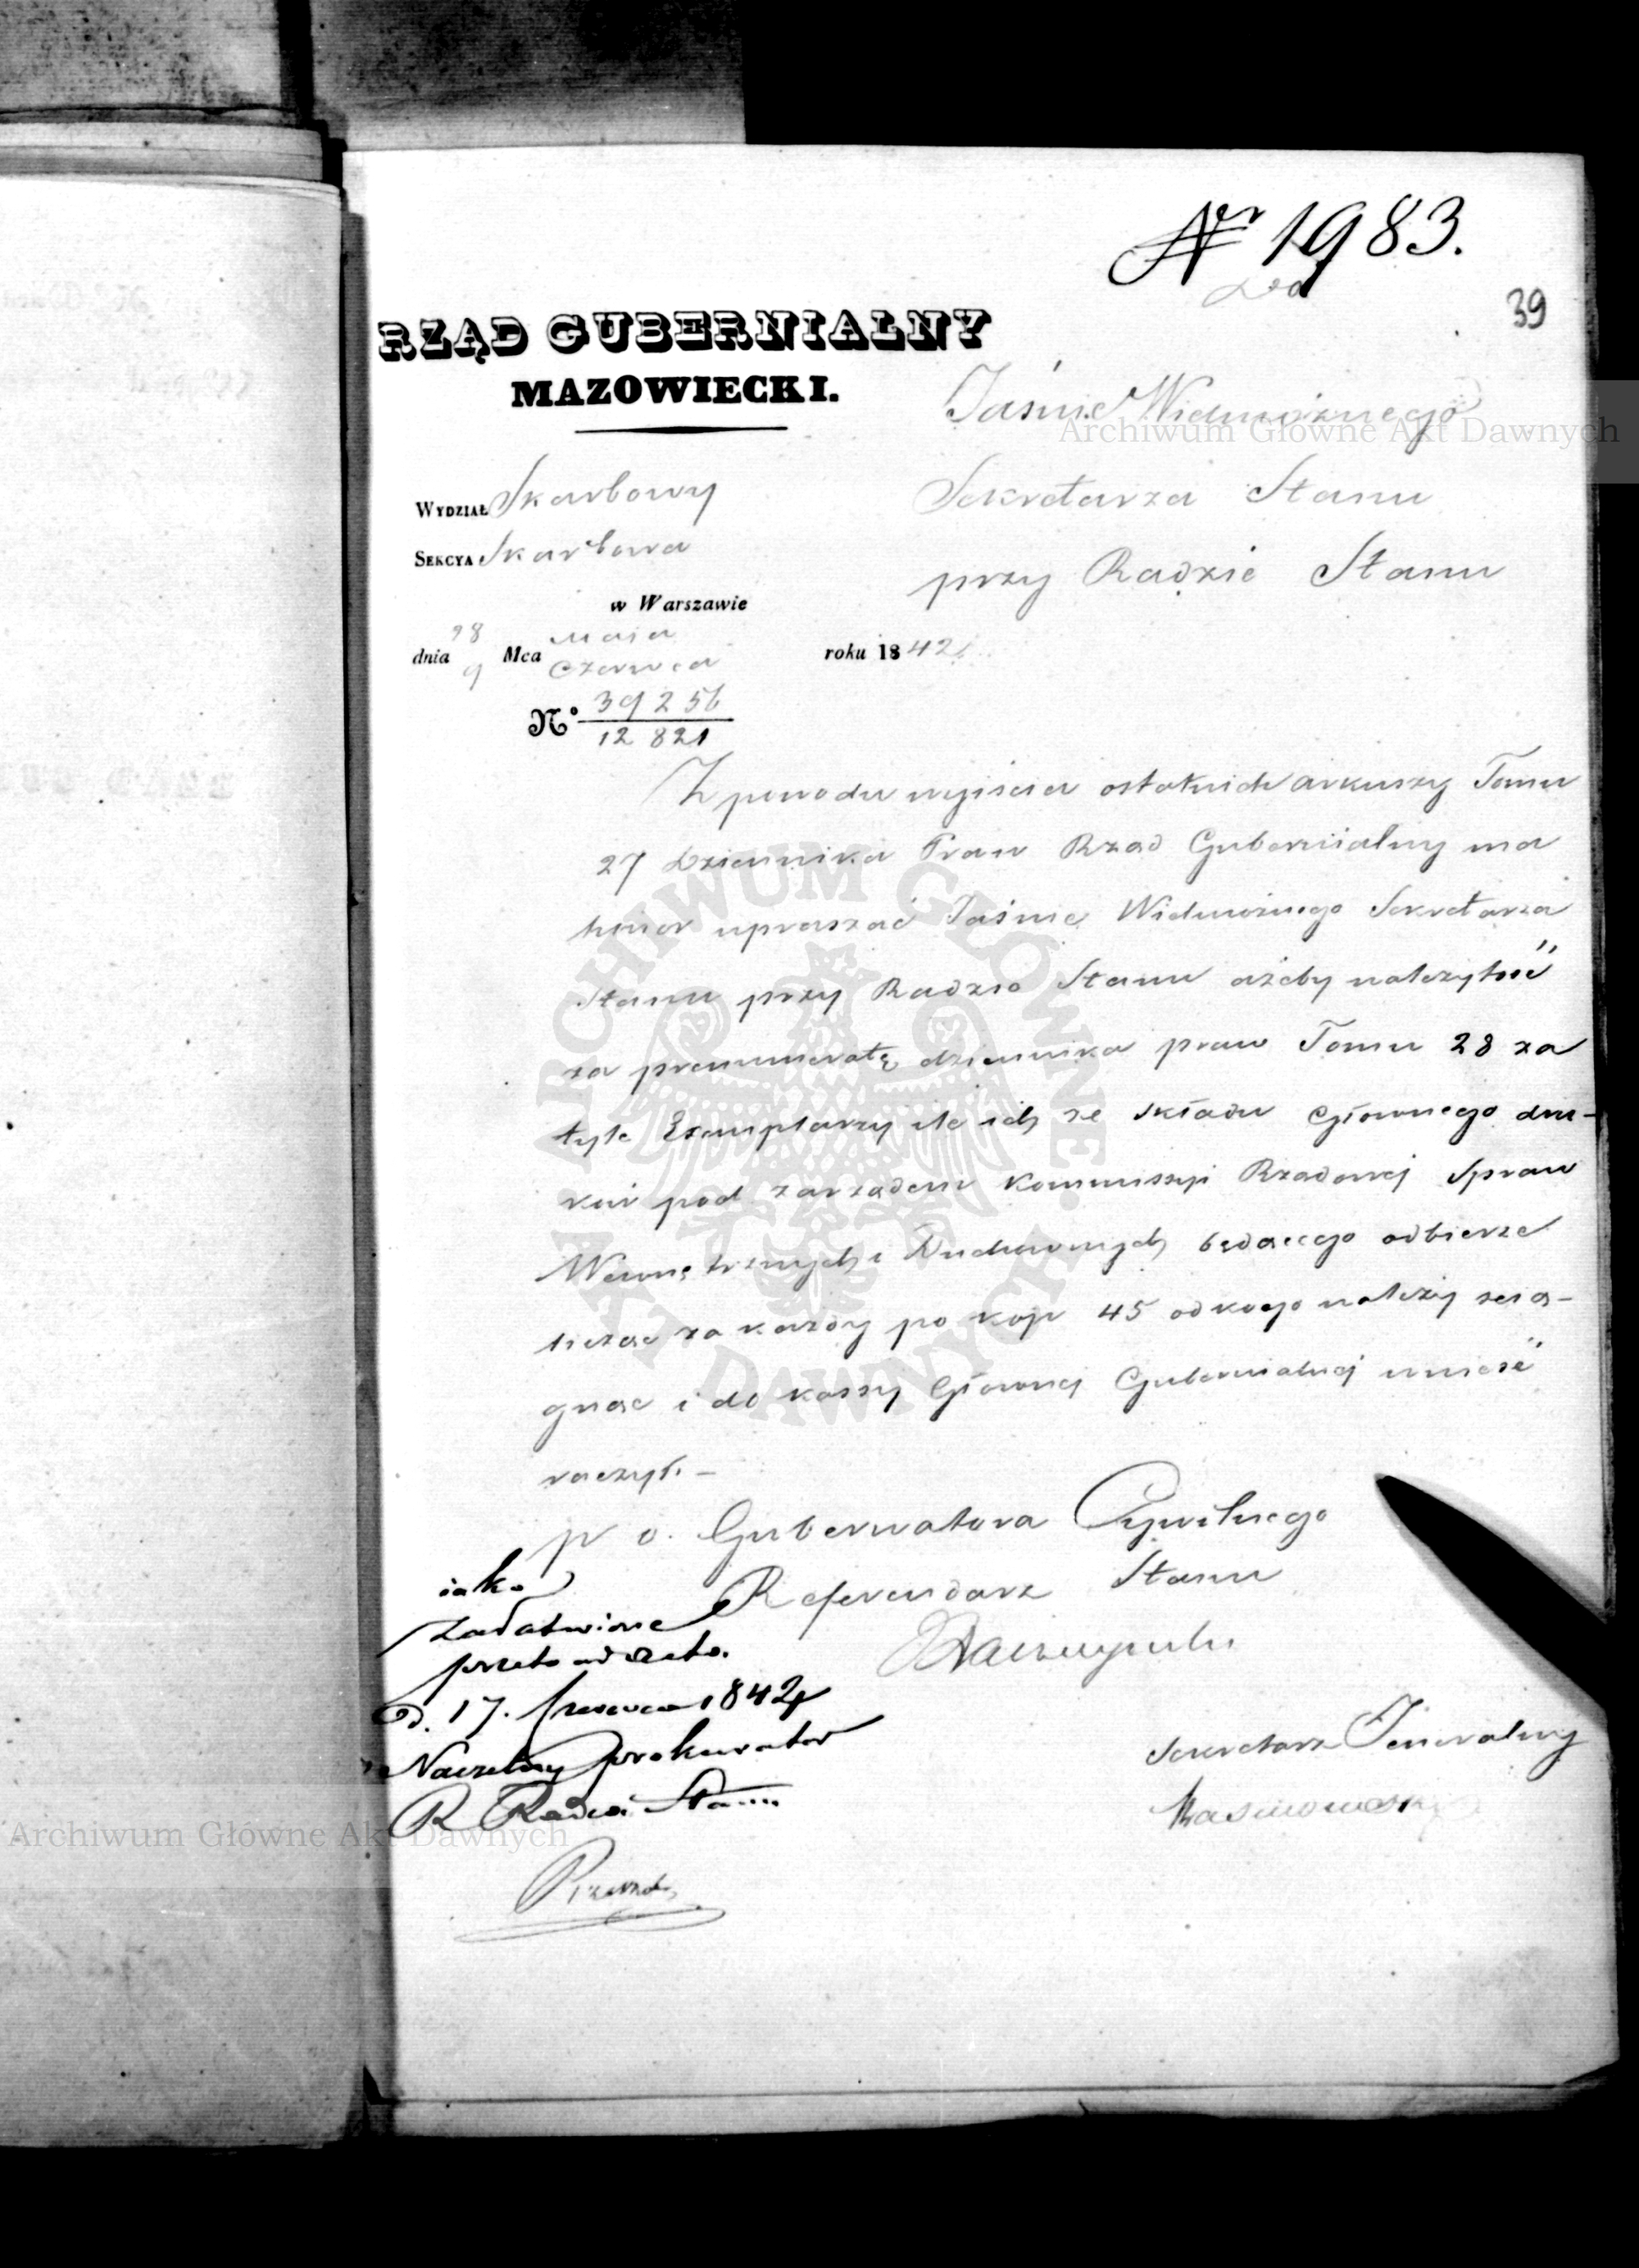 Nr 1983.
39
Do
RZĄD GUBERNIALNY
MAZOWIECKI.
Jaśnie Wielmożnego
Sekretarza Stanu
przy Radzie Stanu
WYDZIAŁ Skarbowy
SEKCYA Skarbowa
w Warszawie
dnia 28/9 Mca Maja/Czerwca roku 1842
N° 39256/12821
Z powodu wyjścia ostatnich arkuszy Tomu
27 Dziennika Praw Rząd Gubernialny ma
honor upraszać Jaśnie Wielmożnego Sekretarza
Stanu przy Radzie Stanu ażeby należytość
za prenumeratę dziennika praw Tomu 28 za
tyle Exemplarzy ile ich ze składu Głownego dru-
kur pod zarządem Kommissyi Rządowej Spraw
Wewnętrznych i Duchownych będącego odbierze
licząc za każdy po kop 45 od kogo należy ścią-
gnąć i do kassy Głownej Gubernialnej wnieść
raczył. —
p o. Gubernatora Cywilnego
Referendarz Stanu
Sekretarz Jeneralny
iako
załatwione
przeto ad acta.
D. 17. Czerwca 1842
Naczelny Prokurator
R. Radca Stanu
Archiwum Główne Akt Dawnych
ARCHIWUM GŁÓWNE AKT DAWNYCH
Archiwum Główne Akt Dawnych